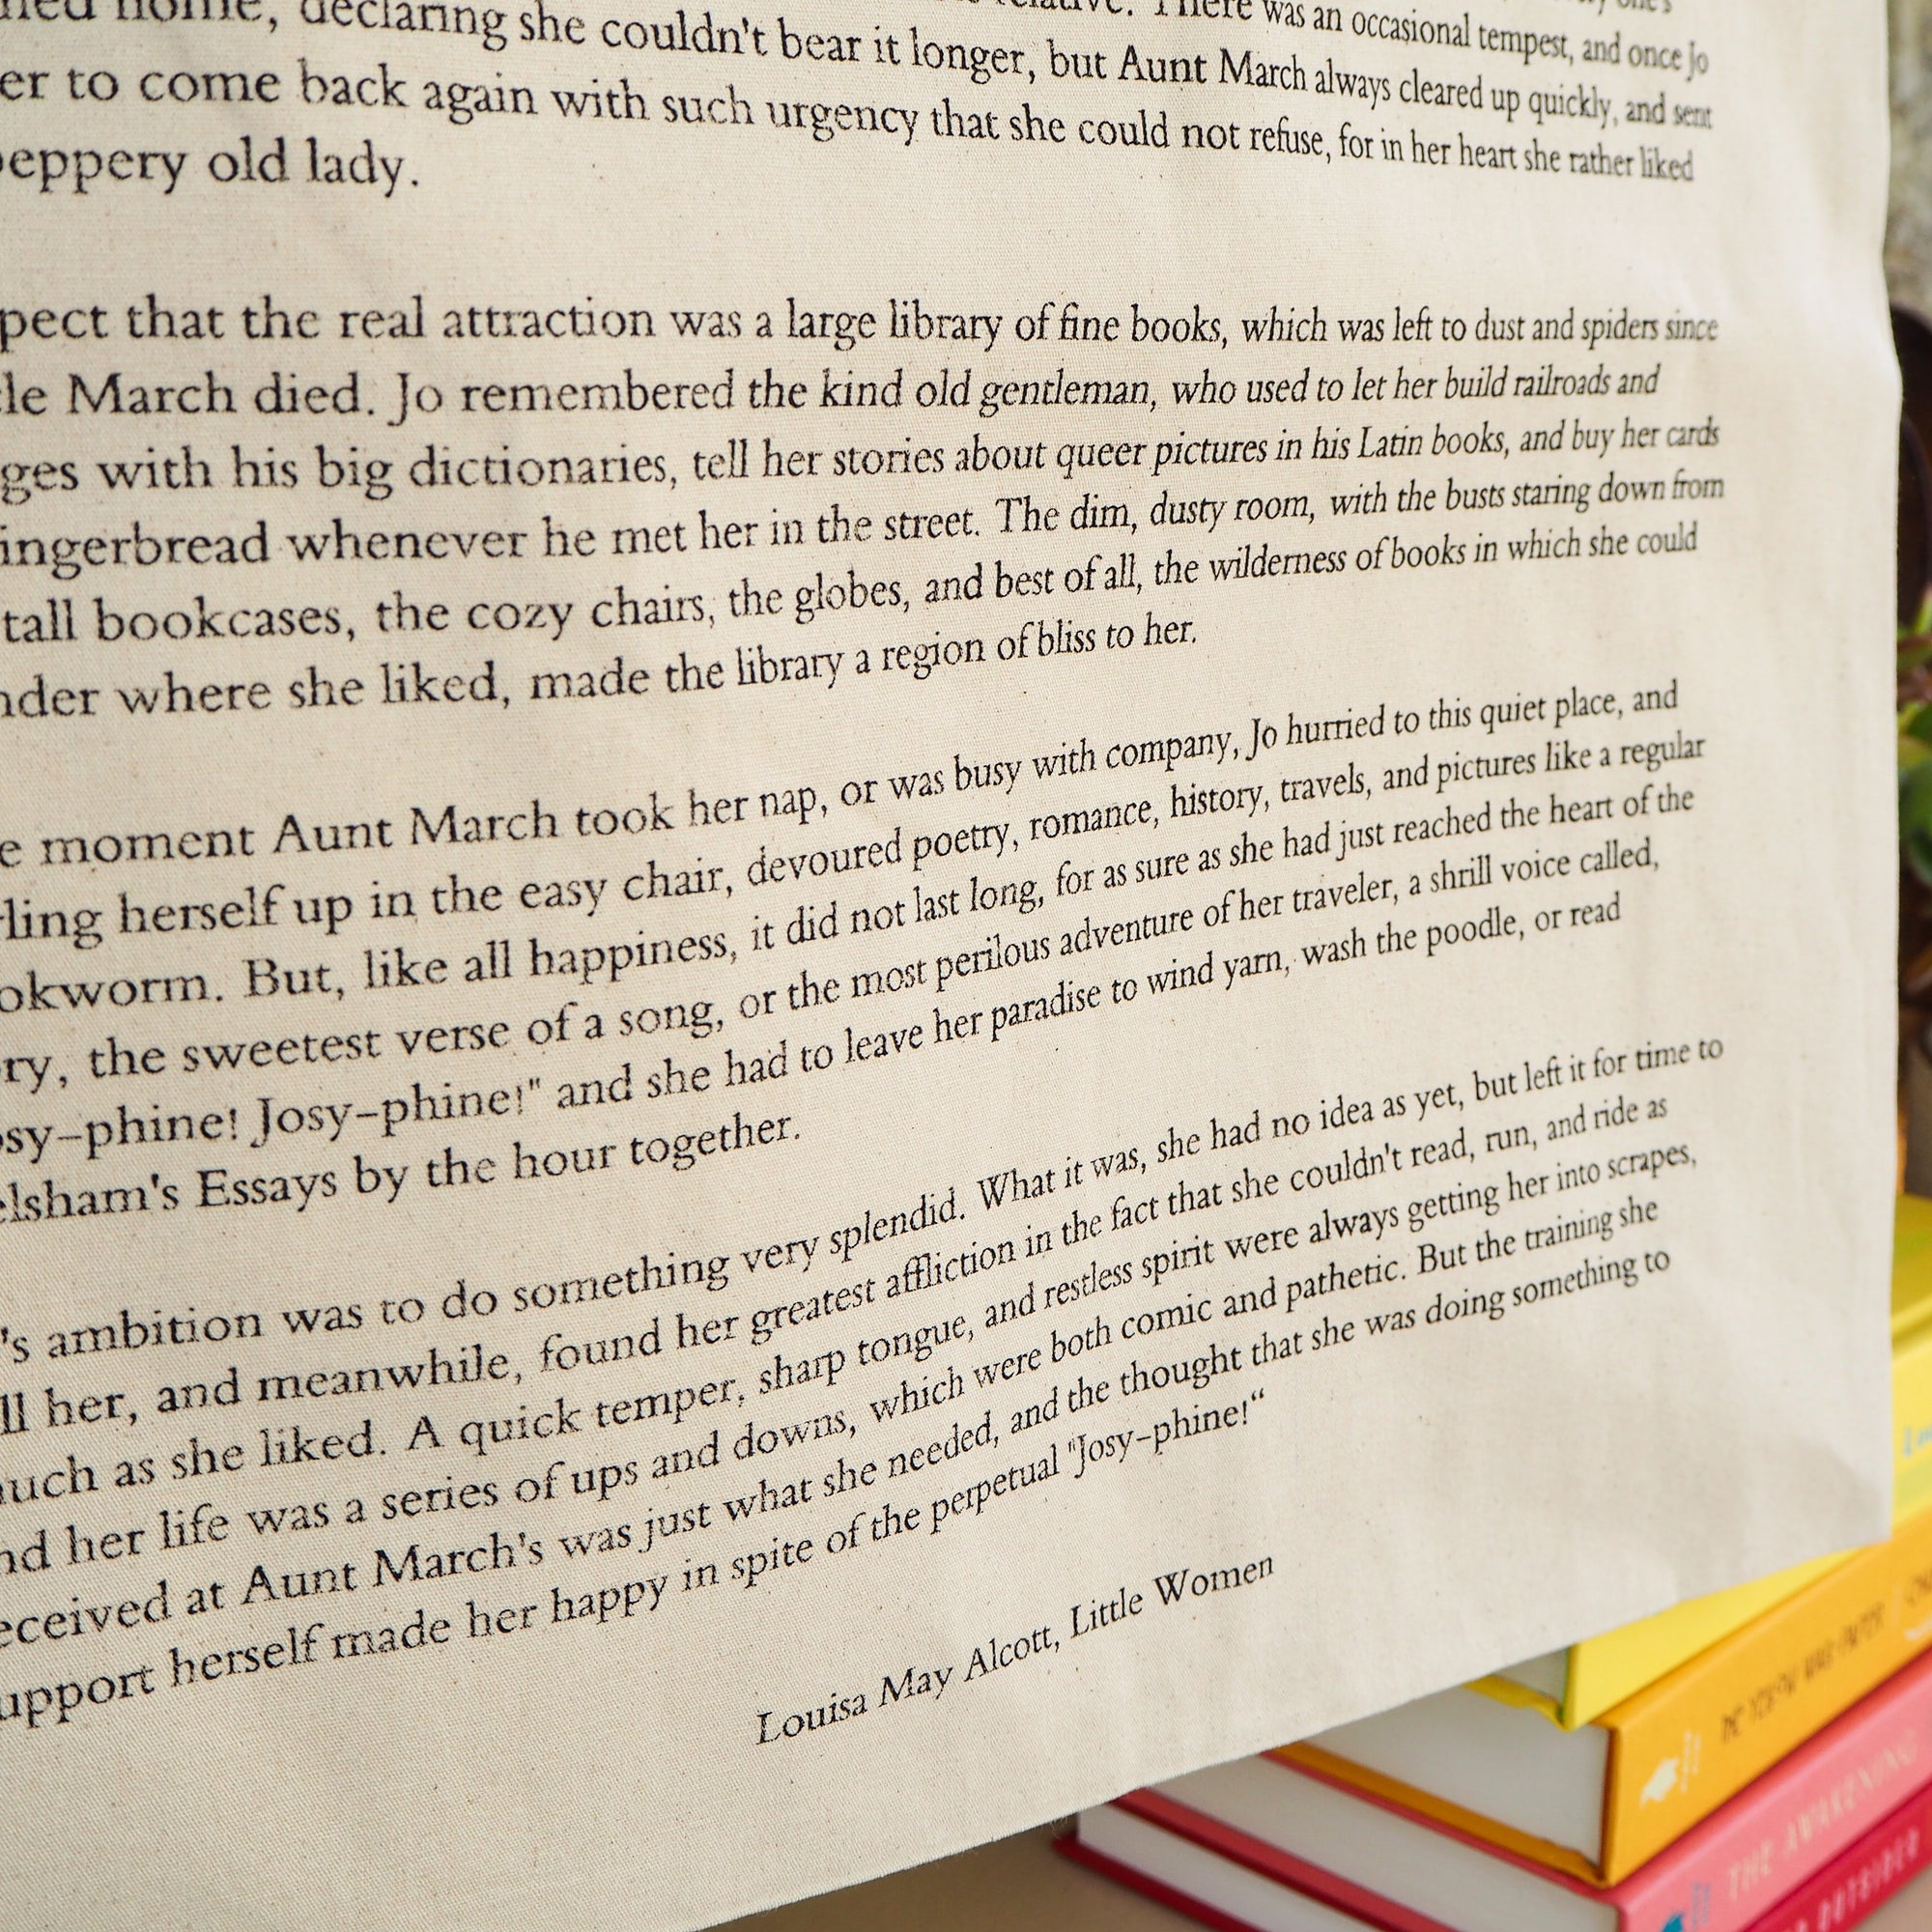 home, declaring she couldn't bear it longer, but Aunt March always cleared up quickly, and sent
relative. There was an occasional tempest, and once Jo
er to come back again with such urgency that she could not refuse, for in her heart she rather liked
peppery old lady.
pect that the real attraction was a large library of fine books, which was left to dust and spiders since
cle March died. Jo remembered the kind old gentleman, who used to let her build railroads and
ges with his big dictionaries, tell her stories about queer pictures in his Latin books, and buy her cards
ingerbread whenever he met her in the street. The dim, dusty room, with the busts staring down from
tall bookcases, the cozy chairs, the globes, and best of all, the wilderness of books in which she could
nder where she liked, made the library a region of bliss to her.
e moment Aunt March took her nap, or was busy with company, Jo hurried to this quiet place, and
rling herself up in the easy chair, devoured poetry, romance, history, travels, and pictures like a regular
okworm. But, like all happiness, it did not last long, for as sure as she had just reached the heart of the
ry, the sweetest verse of a song, or the most perilous adventure of her traveler, a shrill voice called,
osy-phine! Josy-phine!" and she had to leave her paradise to wind yarn, wash the poodle, or read
elsham's Essays by the hour together.
's ambition was to do something very splendid. What it was, she had no idea as yet, but left it for time to
ll her, and meanwhile, found her greatest affliction in the fact that she couldn't read, run, and ride as
much as she liked. A quick temper, sharp tongue, and restless spirit were always getting her into scrapes,
nd her life was a series of ups and downs, which were both comic and pathetic. But the training she
eceived at Aunt March's was just what she needed, and the thought that she was doing something to
upport herself made her happy in spite of the perpetual "Josy-phine!"
Louisa May Alcott, Little Women
THE AWAKENING
OUTSIDER